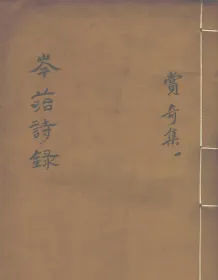 賞奇集一
岑菭詩錄